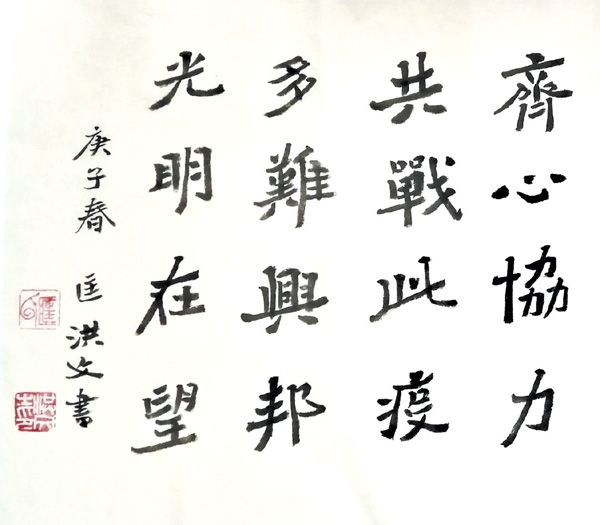 齊心協力
共戰此疫
多難興邦
光明在望
庚子春 匡洪文書